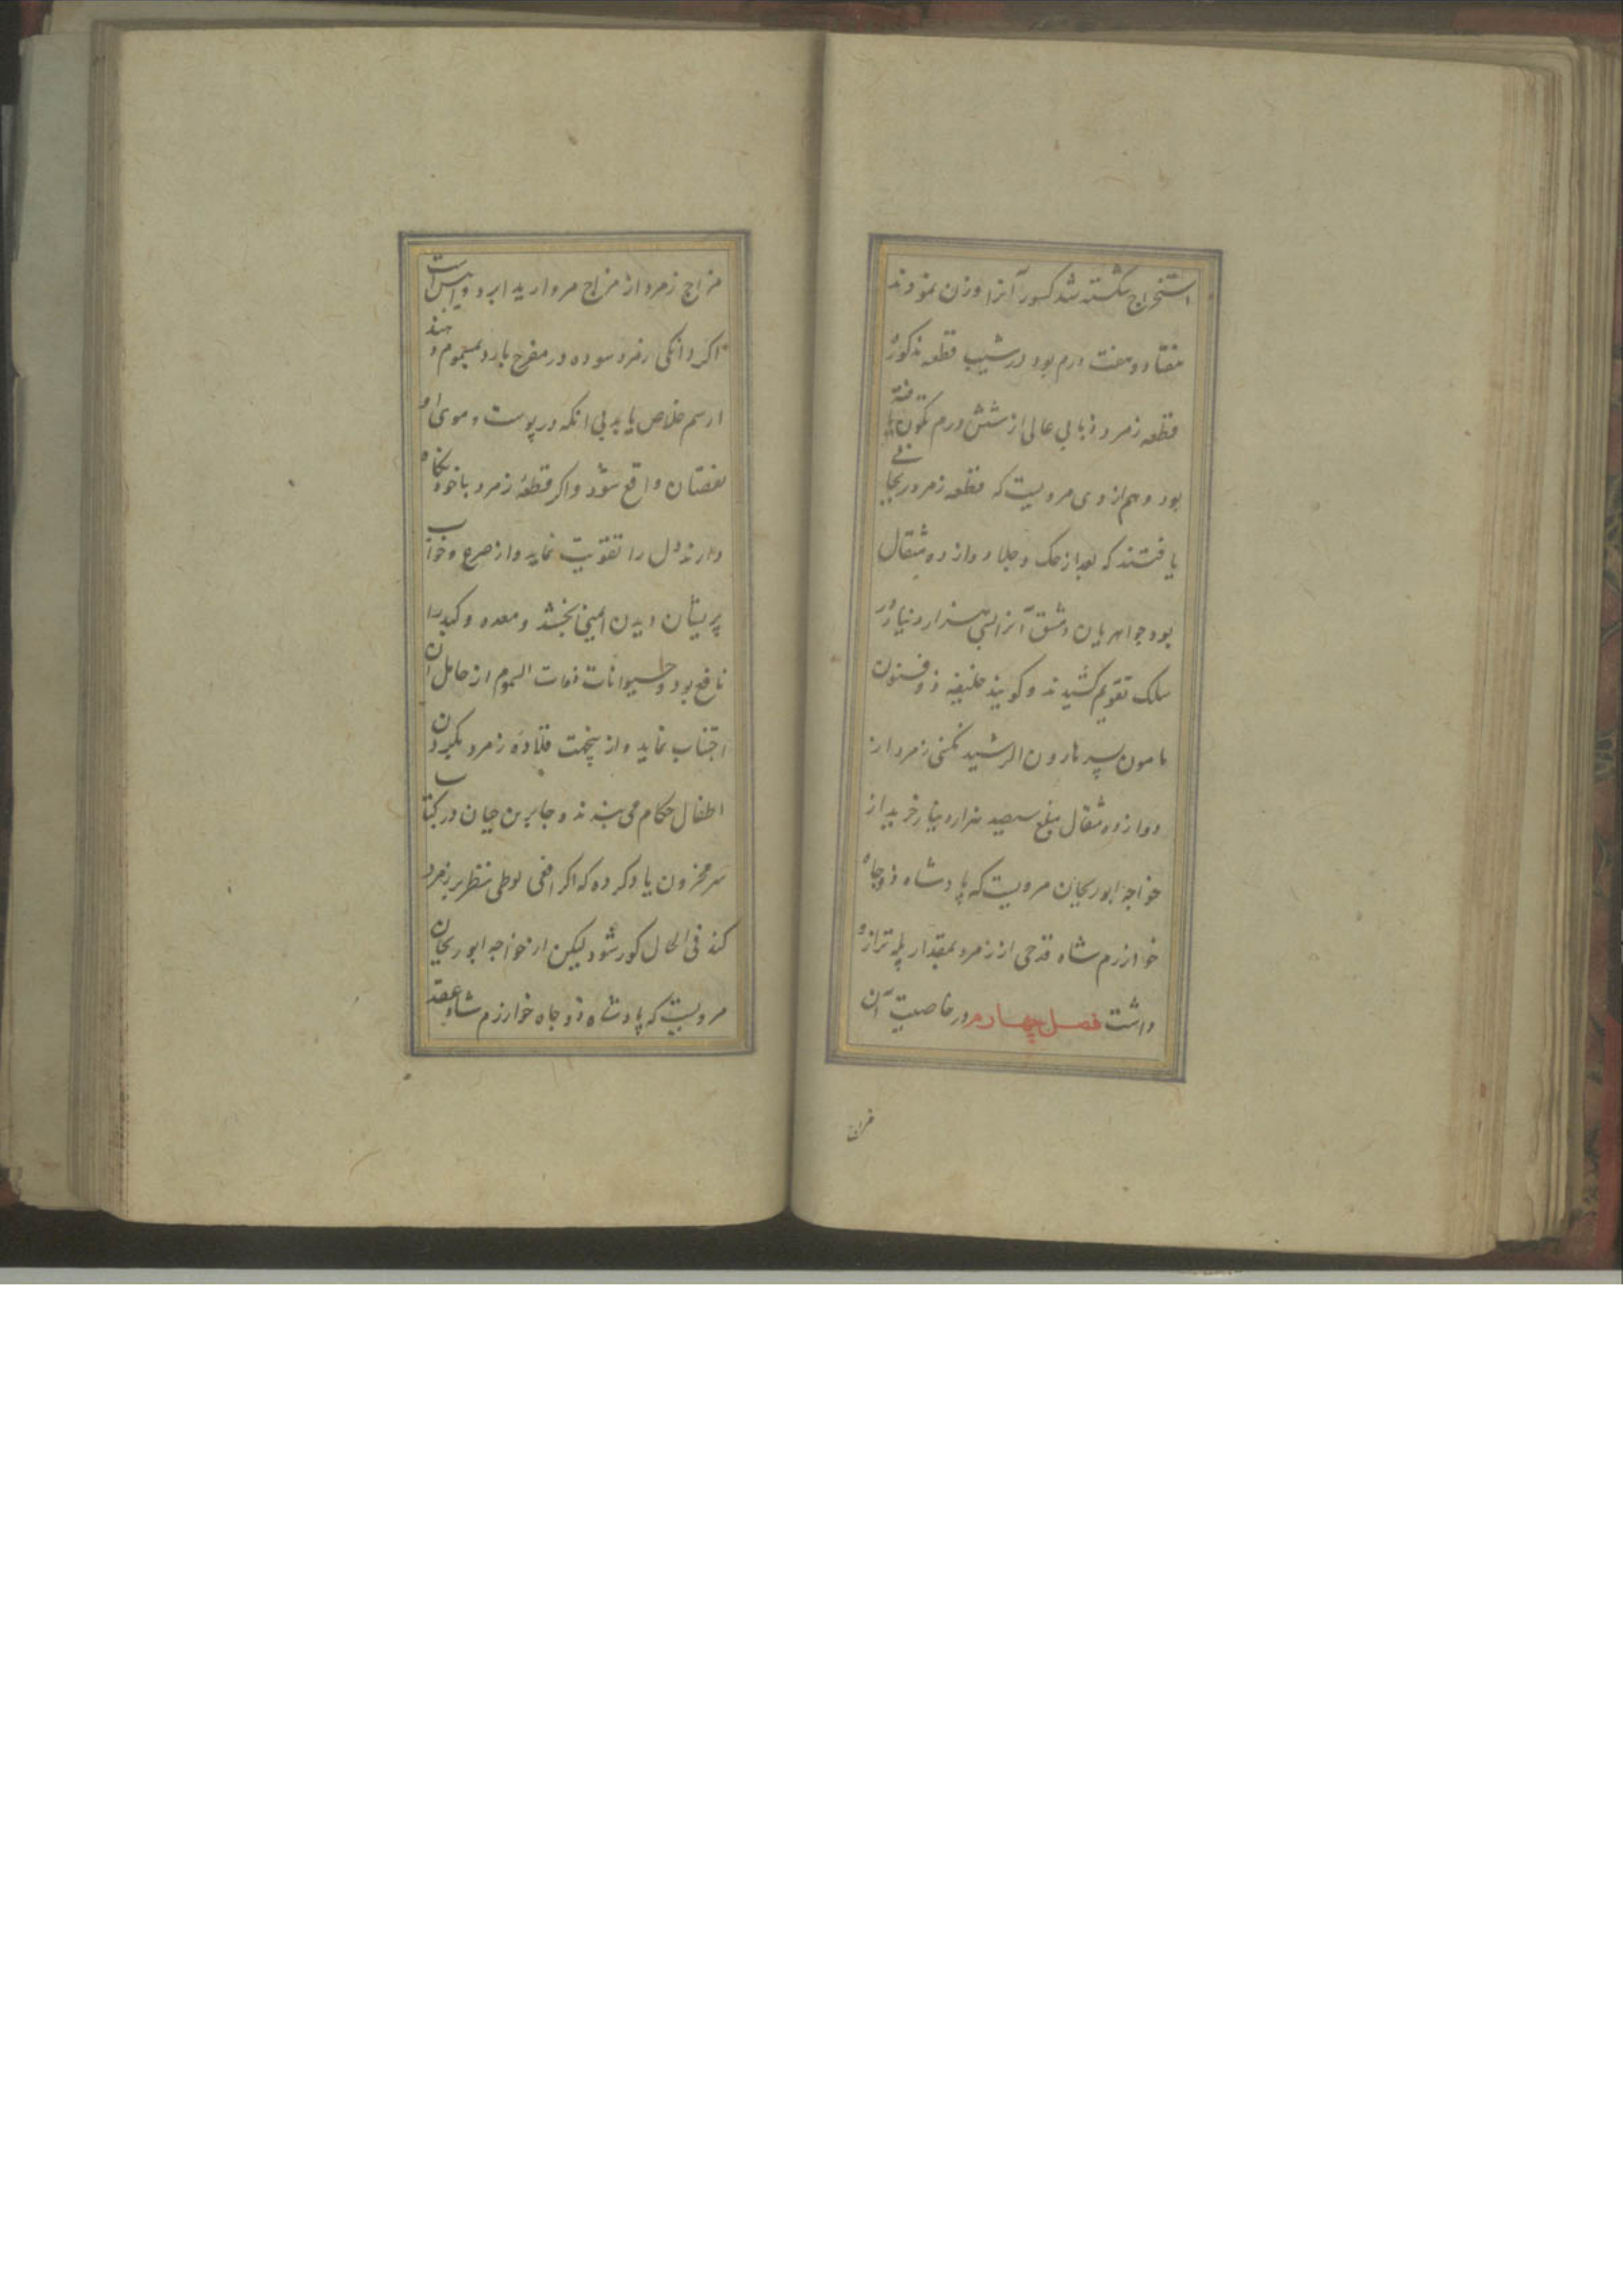 استخراج شکسته شد کسور آنرا وزن نمودند
هفتاد و هفت درم بود در شیب قطعه مذکور
قطعه زمرد ذبابی عالی از شش درم تکون یافته
بود و هم از وی مرویست که قطعه زمرد ریحانی
یافتند که بعد از حک و جلا دوازده مثقال
بود جواهریان دمشق آنرا هزار دینار در
سلک تقویم کشیدند و کویند خلیفه ذوفنون
مامون پسر هارون الرشید نکینی زمرد از
دوازده مثقال بمبلغ سیصد هزار دینار خرید از
خواجه ابوریحان مرویست که پادشاه ذوجاه
خوارزم شاه قدحی از زمرد بمقدار پله ترازو
داشت فصل چهارم در خاصیت آن
مزاج
مزاج زمرد از مزاج مروارید ابرد و ایبس است
اکر دانکی زمرد سوده در مفرح بارد بمسموم دهند
از سم خلاص یابد بی انکه در پوست و موی او
نقصان واقع شود و اکر قطعه زمرد با خود نکاه
دارند دل را تقویت نماید و از صرع و خواب
پریشان دیدن ایمنی بخشد و معده و کبد را
نافع بود و حیوانات ذوات السموم از حامل آن
اجتناب نماید و از ینجهت قلاده زمرد بکردن
اطفال حکام می بندند و جابر بن حیان در کتاب
سر مخزون یاد کرده که اکر افعی لوطی نظر بر زمرد
کند فی الحال کور شود لیکن از خواجه ابوریحان
مرویست که پادشاه ذوجاه خوارزم شاه عقد